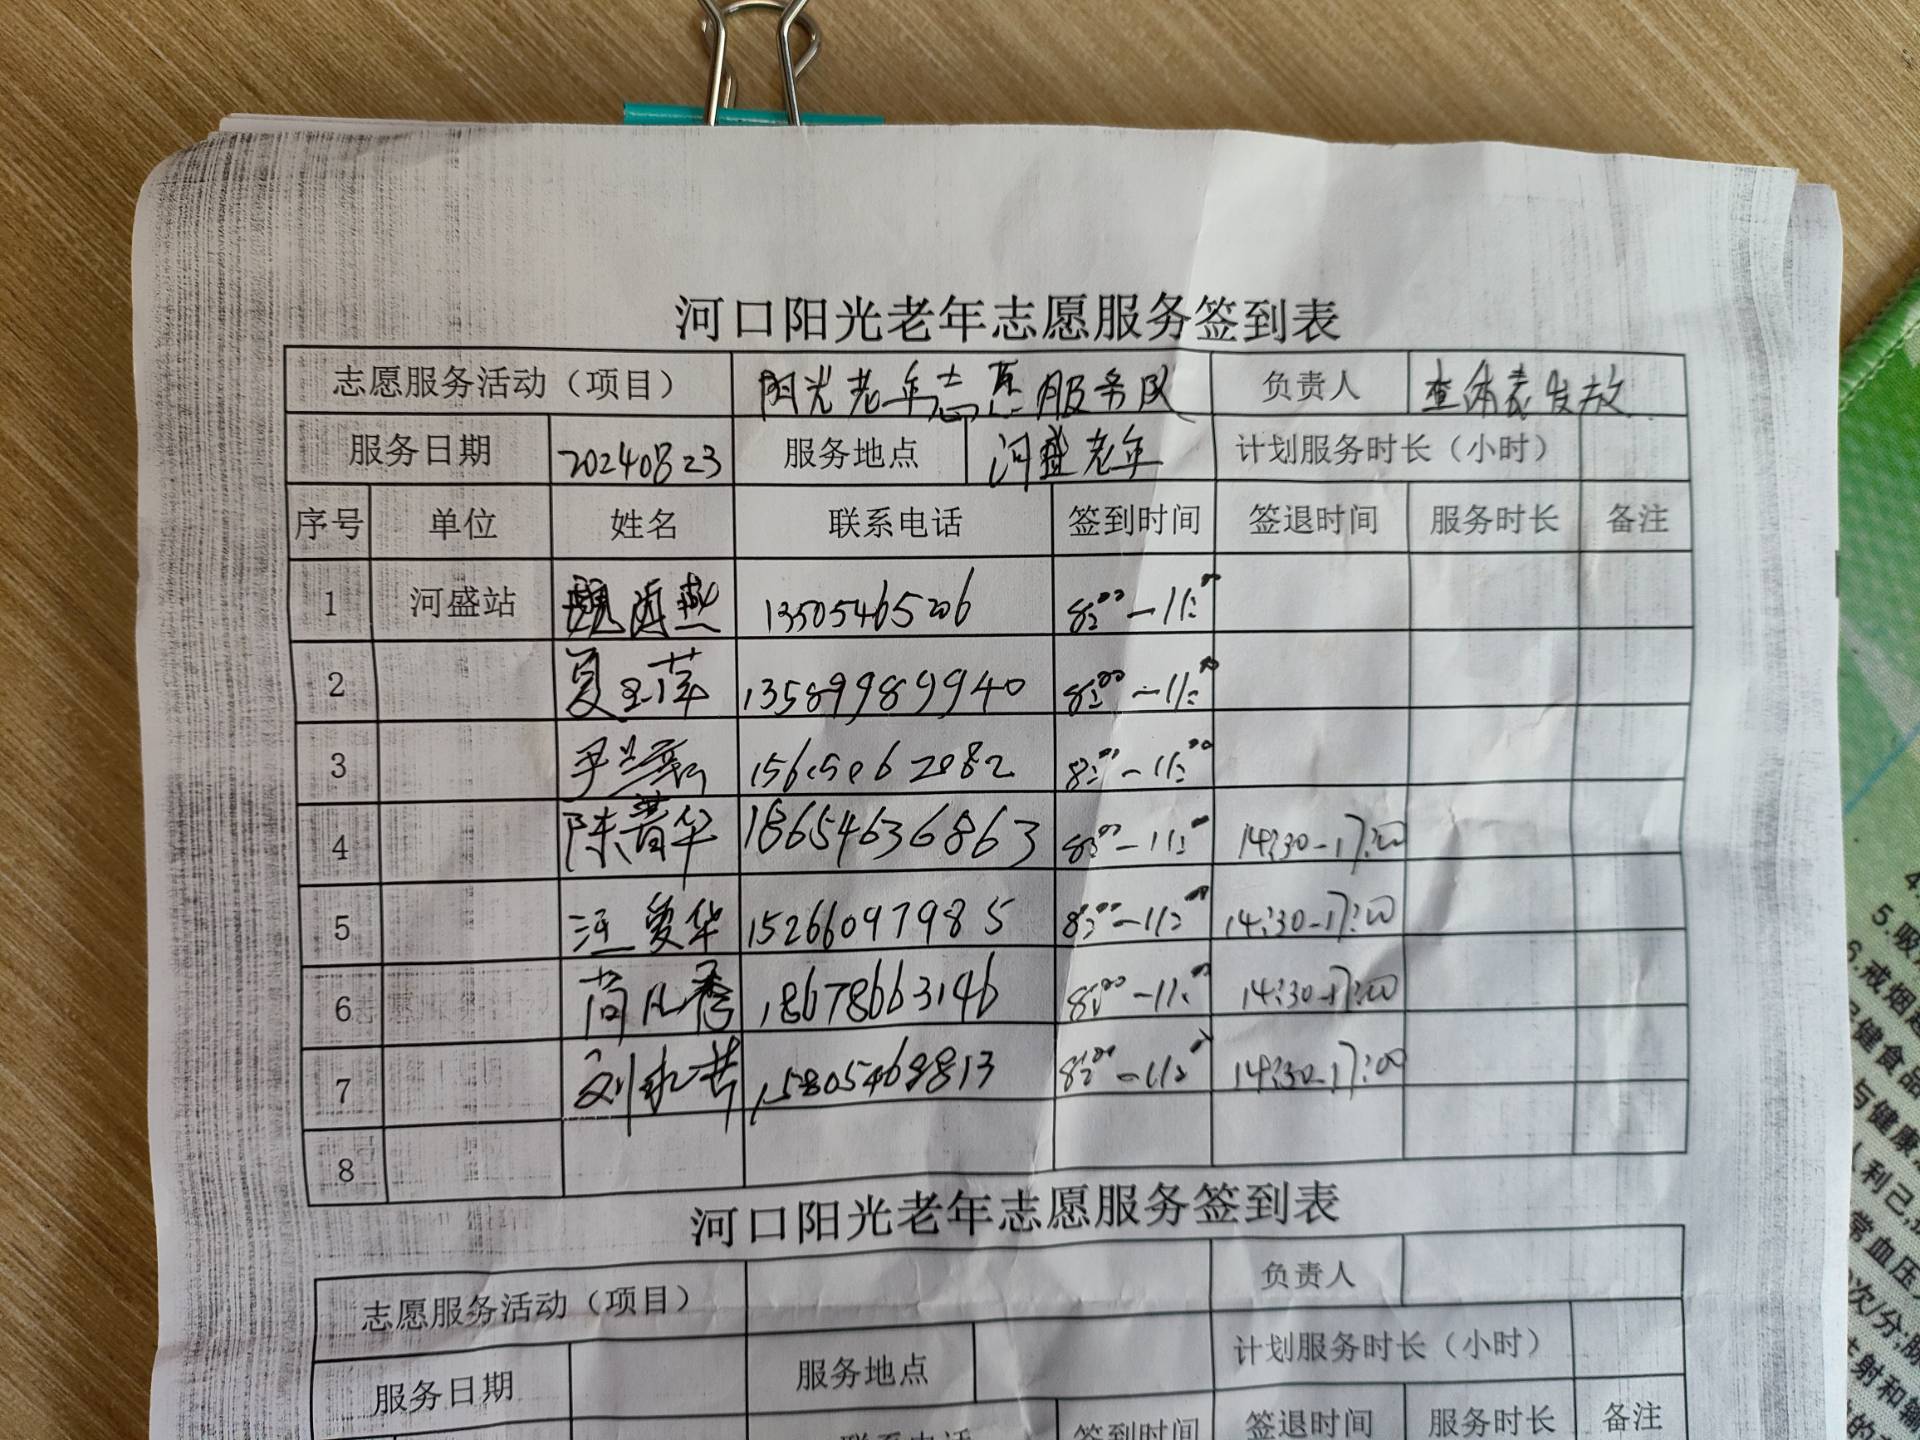 河口阳光老年志愿服务签到表
志愿服务活动（项目） 阳光老年志愿服务队 负责人 查体表发放
服务日期 20240823 服务地点 河盛老年 计划服务时长（小时）
序号 单位 姓名 联系电话 签到时间 签退时间 服务时长 备注
1 河盛站 魏海燕 13505465206 8:00-11:00
2 夏玉萍 13589989940 8:00-11:00
3 尹兰 8:00-11:00
4 陈普华 18654636863 8:00-11:00 14:30-17:00
5 汪爱华 15266097985 8:00-11:00 14:30-17:00
6 秀 18678663146 8:00-11:00 14:30-17:00
7 刘永 15805468813 8:00-11:00 14:30-17:00
8
河口阳光老年志愿服务签到表
志愿服务活动（项目） 负责人
服务日期 服务地点 计划服务时长（小时）
联系电话 签到时间 签退时间 服务时长 备注
4.
5.吸
6.戒烟
健食品
与健康
利己
常血压
次/分,脉
射和输
的